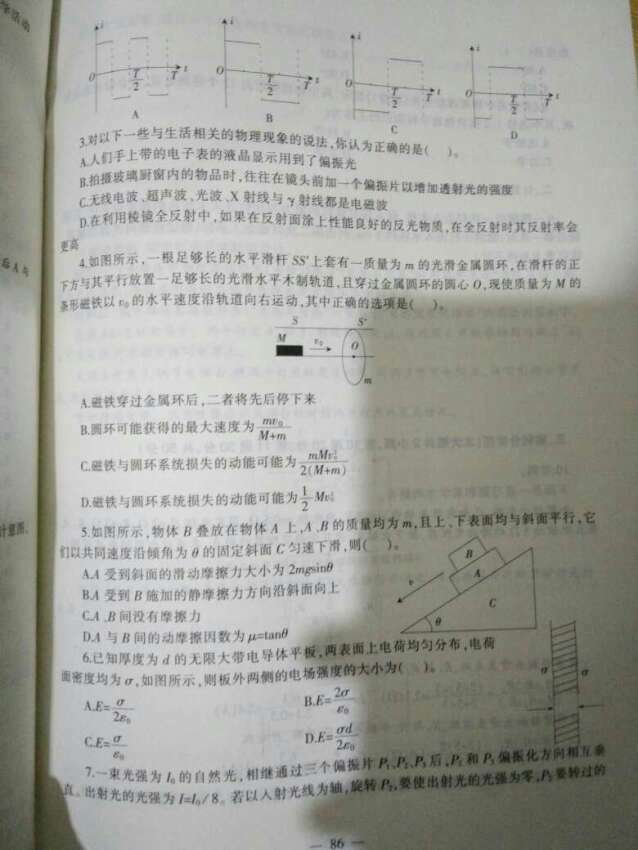 i i i i
O T/2 T t O T/2 T t O T/2 T t O T/2 T t
A B C D
3.对以下一些与生活相关的物理现象的说法,你认为正确的是( )。
A.人们手上带的电子表的液晶显示用到了偏振光
B.拍摄玻璃厨窗内的物品时,往往在镜头前加一个偏振片以增加透射光的强度
C.无线电波、超声波、光波、X 射线与 γ 射线都是电磁波
D.在利用棱镜全反射中,如果在反射面涂上性能良好的反光物质,在全反射时其反射率会
更高
4.如图所示,一根足够长的水平滑杆 SS′上套有一质量为 m 的光滑金属圆环,在滑杆的正
下方与其平行放置一足够长的光滑水平木制轨道,且穿过金属圆环的圆心 O,现使质量为 M 的
条形磁铁以 v₀ 的水平速度沿轨道向右运动,其中正确的选项是( )。
S S′
M v₀ O
m
A.磁铁穿过金属环后,二者将先后停下来
B.圆环可能获得的最大速度为 mv₀/(M+m)
C.磁铁与圆环系统损失的动能可能为 mMv₀²/2(M+m)
D.磁铁与圆环系统损失的动能可能为 1/2 Mv₀²
5.如图所示,物体 B 叠放在物体 A 上,A、B 的质量均为 m,且上、下表面均与斜面平行,它
们以共同速度沿倾角为 θ 的固定斜面 C 匀速下滑,则( )。
A.A 受到斜面的滑动摩擦力大小为 2mgsinθ
B.A 受到 B 施加的静摩擦力方向沿斜面向上
C.A、B 间没有摩擦力
D.A 与 B 间的动摩擦因数为 μ=tanθ
B
A
v
C
θ
6.已知厚度为 d 的无限大带电导体平板,两表面上电荷均匀分布,电荷
面密度均为 σ,如图所示,则板外两侧的电场强度的大小为( )。
σ σ
A.E=σ/2ε₀ B.E=2σ/ε₀
C.E=σ/ε₀ D.E=σd/2ε₀
7.一束光强为 I₀ 的自然光,相继通过三个偏振片 P₁、P₂、P₃ 后,P₁ 和 P₃ 偏振化方向相互垂
直。出射光的光强为 I=I₀/8。若以入射光线为轴,旋转 P₂,要使出射光的光强为零,P₂ 要转过的
— 86 —